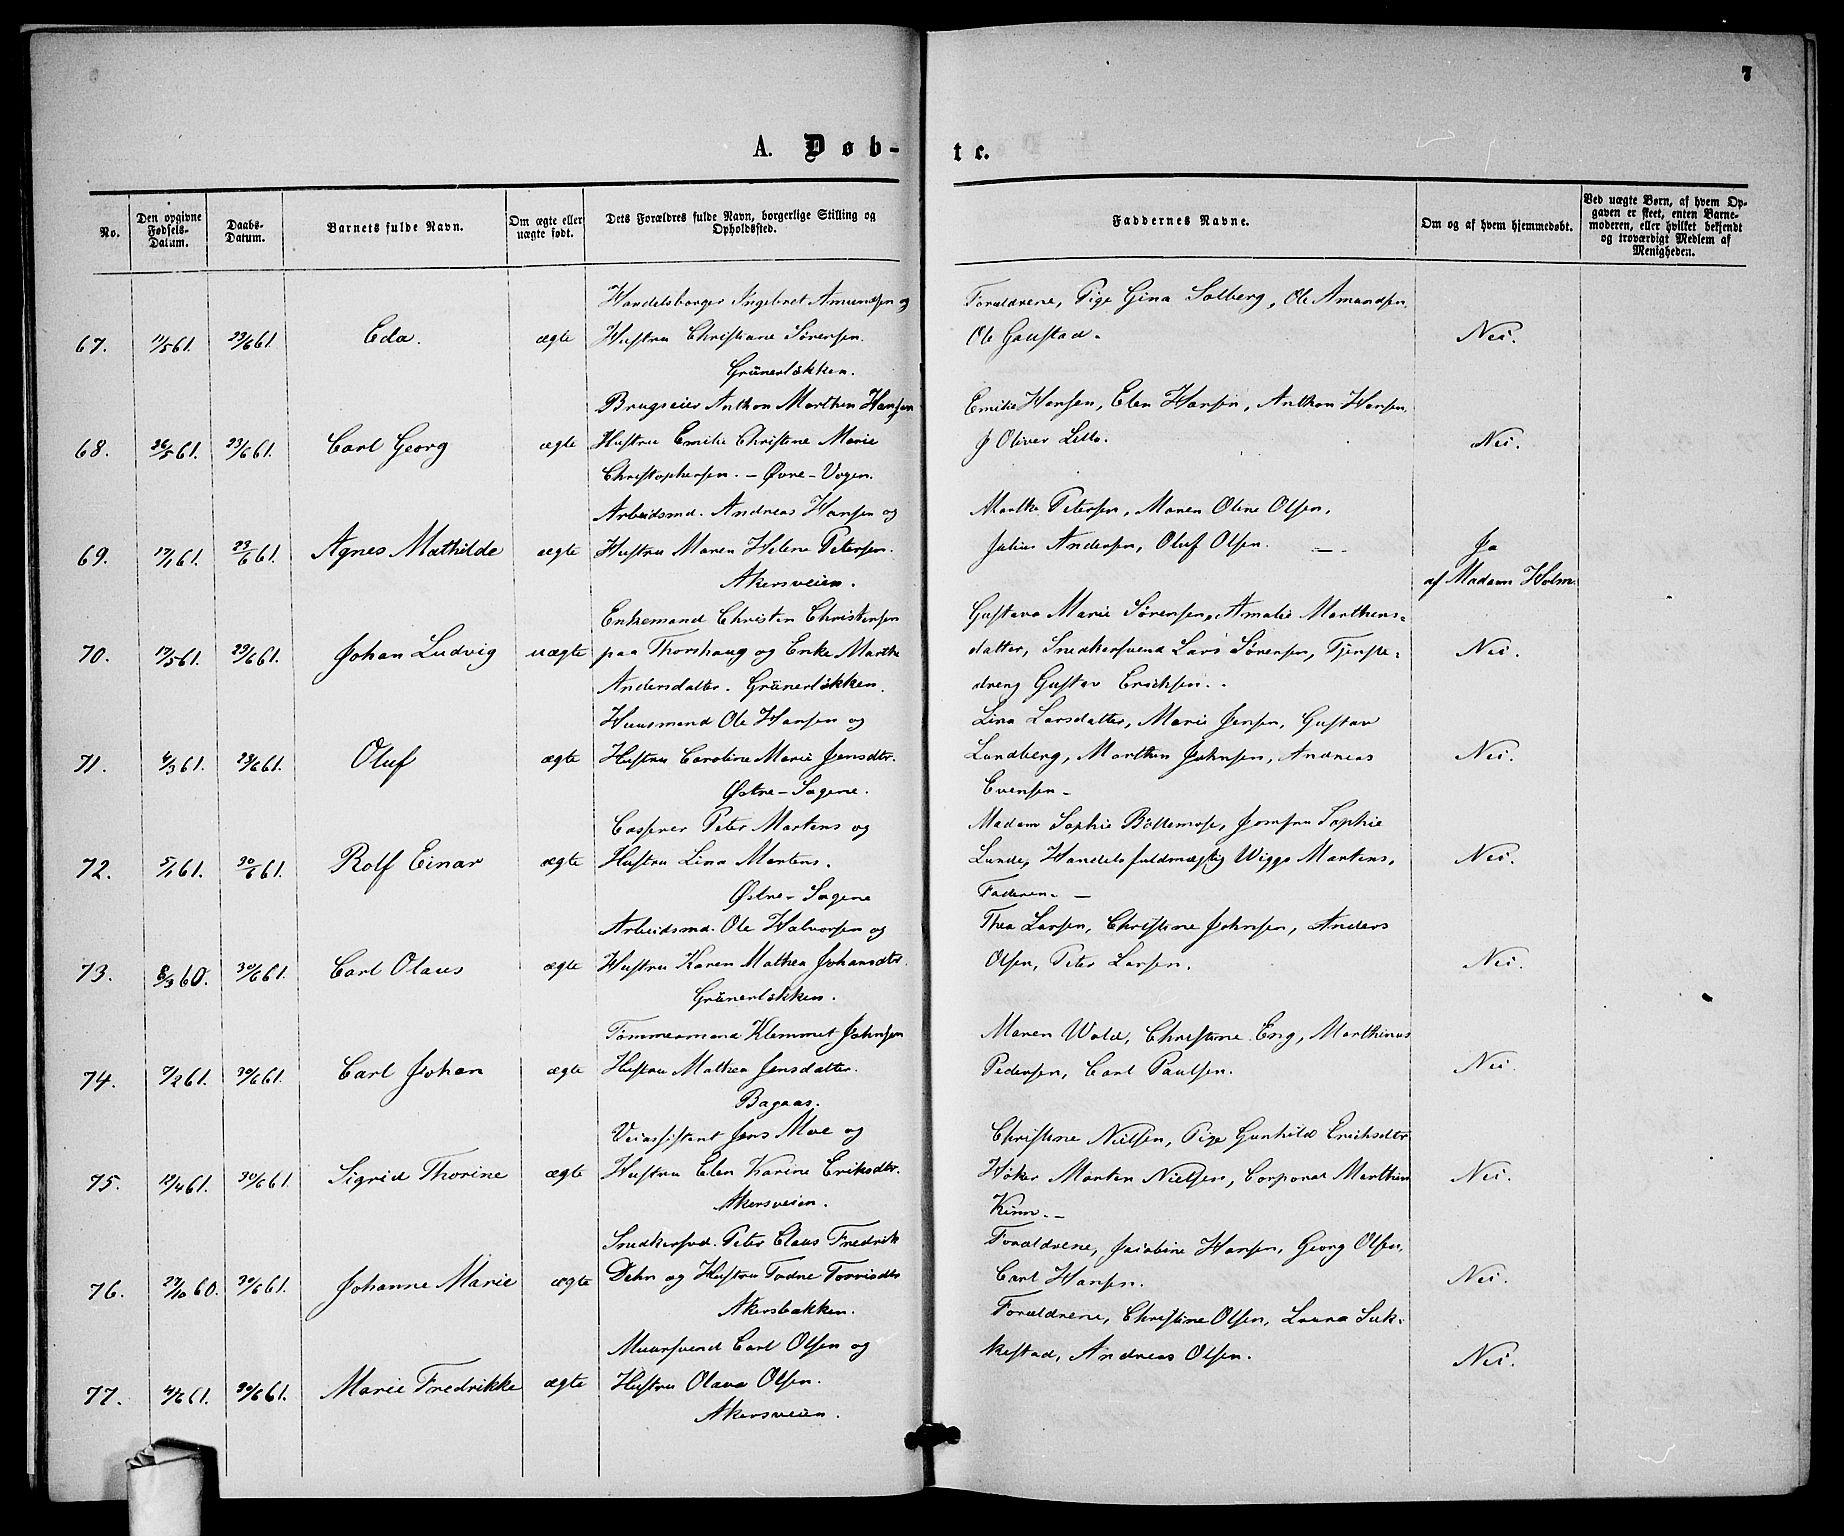 7
A. Døb- te.
No.
Den opgivne Fødsels-Datum.
Daabs-Datum.
Barnets fulde Navn.
Om ægte eller uægte født.
Dets Forældres fulde Navn, borgerlige Stilling og Opholdsted.
Faddernes Navne.
Om og af hvem hjemmedøbt.
Ved uægte Børn, af hvem Opgaven er skeet, enten Barnemoderen, eller hvilket bekjendt og troværdigt Medlem af Menigheden.
Handelsborger Ingebret Amundsen og
Forældrene, Pige Gina Solberg, Ole Amundsen,
67. 11/5 61. 23/6 61. Eda. ægte Hustru Christiane Sørensen. Ole Gaustad. Nei.
Grünerløkken.
Brugseier Anthon Marthin Hansen
Emilie Hansen, Elen Hansen, Anthon Hansen,
68. 26/5 61. 23/6 61. Carl Georg ægte Hustru Emilie Christine Marie J Oliver Lello. Nei.
Christophersen. – Øvre-Vogen.
Arbeidsmd. Andreas Hansen og
Marthe Petersen, Maren Oline Olsen,
69. 17/1 61. 23/6 61. Agnes Mathilde ægte Hustru Maren Helene Petersen. Julius Andersen, Oluf Olsen. Ja
Akersveien.
af Madam Holm.
Enkemand Christen Christensen
Gustava Marie Sørensen, Amalie Marthens-
70. 17/5 61. 23/6 61. Johan Ludvig uægte paa Thorshaug og Enke Marthe datter, Snedkersvend Lars Sørensen, Tjeneste- Nei.
Andersdatter. Grünerløkken.
dreng Gustav Erichsen.
Huusmand Ole Hansen og
Lina Larsdatter, Marie Jensen, Gustav
71. 4/3 61. 23/6 61. Oluf ægte Hustru Caroline Marie Jensdtr. Lundberg, Marthin Johnsen, Andreas Nei.
Østre-Sagene.
Evensen
Casserer Peter Martens og
Madam Sophie Boltemose, Jomfru Sophie
72. 5/1 61. 30/6 61. Rolf Einar ægte Hustru Lina Martens. Lunde, Handelsfuldmægtig Wiggo Martens, Nei.
Østre-Sagene
Faderen.
Arbeidsmd. Ole Halvorsen og
Thea Larsen, Christine Johnsen, Anders
73. 8/9 60. 30/6 61. Carl Olaus ægte Hustru Karen Mathea Johansdtr. Olsen, Peter Larsen. Nei.
Grünerløkken.
Tømmermand Klemmet Johnsen
Maren Wold, Christine Eng, Marthinus
74. 7/2 61. 30/6 61. Carl Johan ægte Hustru Mathea Jensdatter. Pedersen, Carl Paulsen. Nei.
Bagaas.
Veiassistent Jens Moe og
Christine Nielsen, Pige Gunhild Erichsdtr
75. 12/4 61. 30/6 61. Sigrid Thorine ægte Hustru Elen Karine Eriksdtr. Høker Morten Nielsen, Corporal Marthin Nei.
Akersveien.
Kinn.
Snedkersvd. Peter Claus Fredrik
Forældrene, Jacobine Hansen, Georg Olsen,
76. 27/10 60. 30/6 61. Johanne Marie ægte Dehn og Hustru Todne Torrisdtr Carl Hansen. Nei.
Akersbakken.
Forældrene, Christine Olsen, Laura Suk-
Muursvend Carl Olsen og
kestad, Andreas Olsen. Nei.
77. 4/6 61. 30/6 61. Marie Fredrikke ægte Hustru Olava Olsen.
Akersveien.